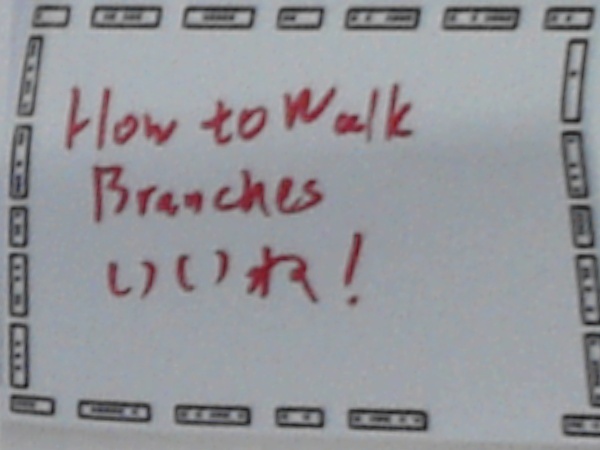 How to Walk
Branches
いいね!